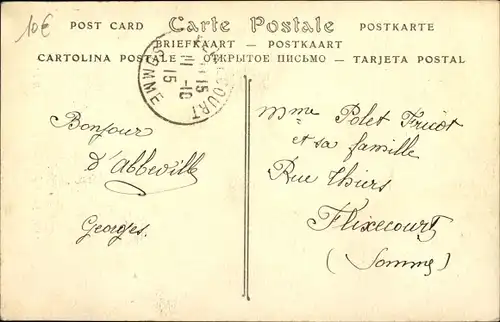 10€
POST CARD Carte Postale POSTKARTE
BRIEFKAART — POSTKAART
CARTOLINA POSTALE — ОТКРЫТОЕ ПИСЬМО — TARJETA POSTAL
SOMME
15
11-10
15
Bonjour
d'Abbeville
Georges.
Mme Polet Fricot
et sa famille
Rue Thiers
Flixecourt
(Somme)